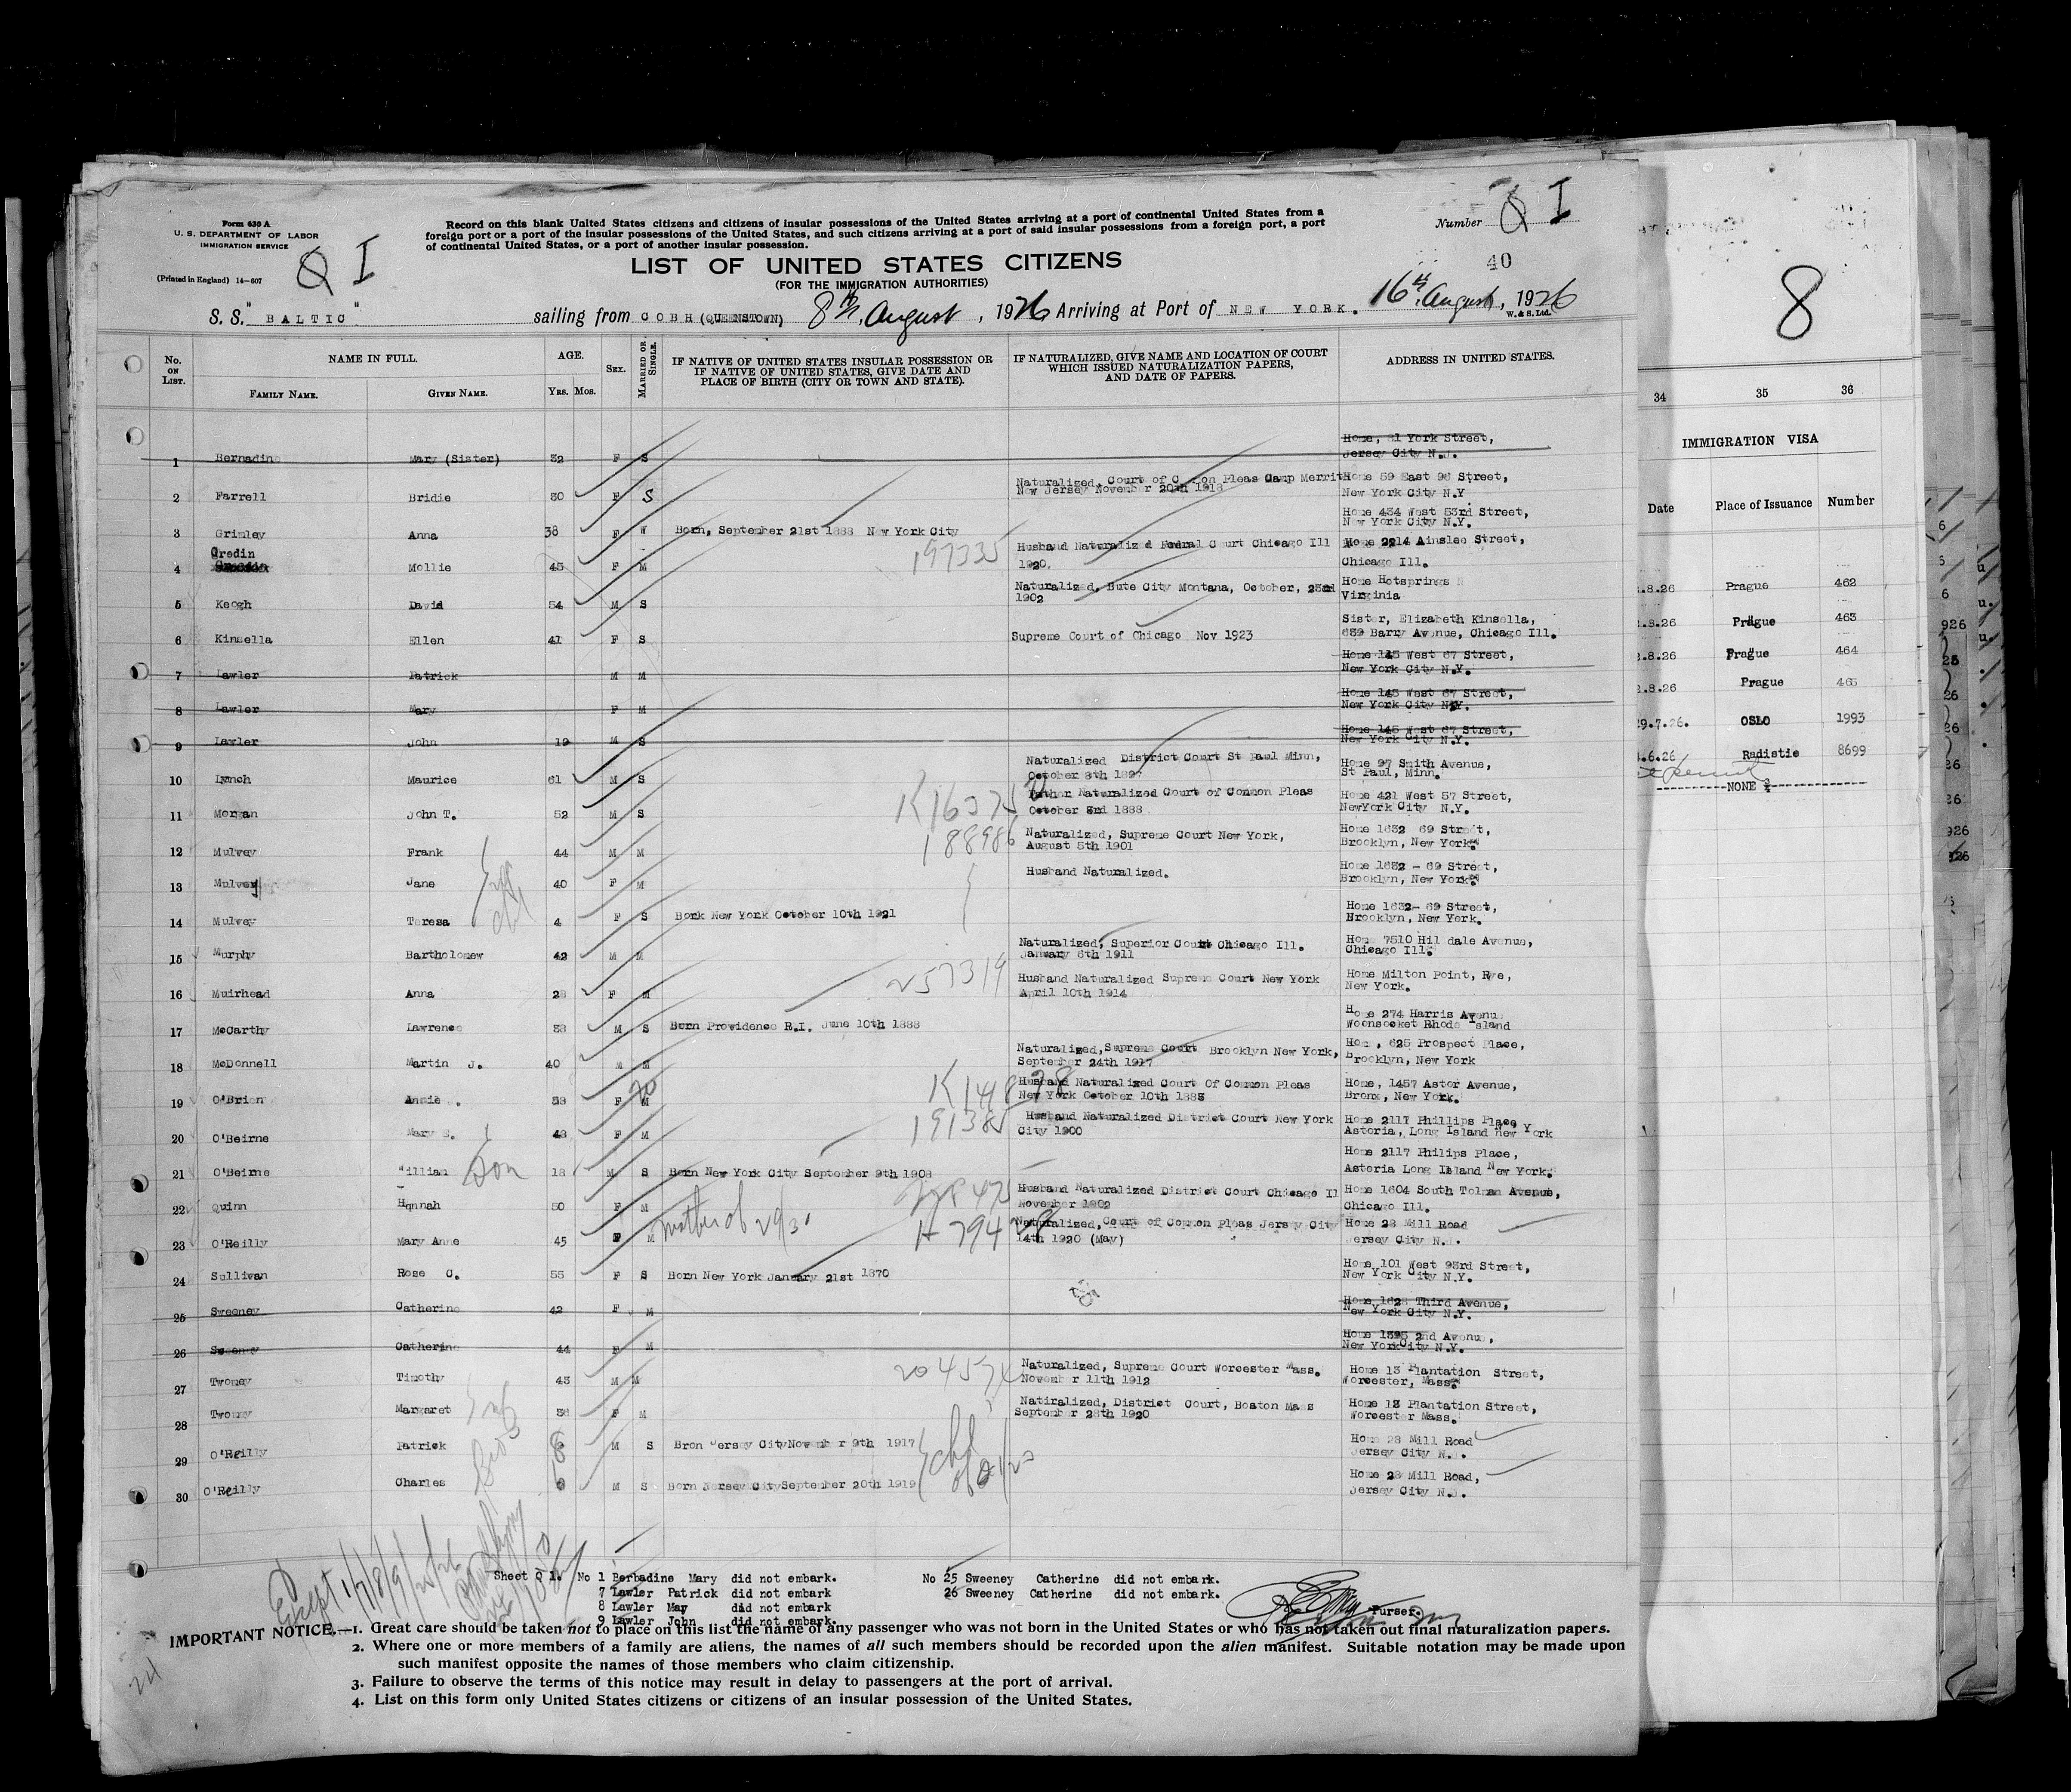 Form 630 A
U. S. DEPARTMENT OF LABOR
IMMIGRATION SERVICE
(Printed in England) 14-607
Q I
Record on this blank United States citizens and citizens of insular possessions of the United States arriving at a port of continental United States from a
foreign port or a port of the insular possessions of the United States, and such citizens arriving at a port of said insular possessions from a foreign port, a port
of continental United States, or a port of another insular possession.
Number Q I
40
LIST OF UNITED STATES CITIZENS
(FOR THE IMMIGRATION AUTHORITIES)
S. S. "BALTIC" sailing from COBH (QUEENSTOWN) 8th August, 1926 Arriving at Port of NEW YORK. 16th August, 1926
W. & S. Ltd.
No. ON LIST.
NAME IN FULL.
FAMILY NAME. GIVEN NAME.
AGE.
YRS. MOS.
SEX.
MARRIED OR SINGLE.
IF NATIVE OF UNITED STATES INSULAR POSSESSION OR
IF NATIVE OF UNITED STATES, GIVE DATE AND
PLACE OF BIRTH (CITY OR TOWN AND STATE).
IF NATURALIZED, GIVE NAME AND LOCATION OF COURT
WHICH ISSUED NATURALIZATION PAPERS,
AND DATE OF PAPERS.
ADDRESS IN UNITED STATES.
1 Bernadine Mary (Sister) 32 F S Home, 81 York Street,
Jersey City N.J.
2 Farrell Bridie 30 F S Naturalized, Court of Common Pleas Camp Merrit Home 59 East 96 Street,
New Jersey November 20th 1918 New York City N.Y
3 Grimley Anna 38 F W Born, September 21st 1888 New York City Home 434 West 53rd Street,
New York City N.Y.
4 Gredin Mollie 45 F M 197335 Husband Naturalized Federal Court Chicago Ill Home 2214 Ainslee Street,
1920. Chicago Ill.
5 Keogh David 54 M S Naturalized, Bute City Montana, October, 23rd Home Hotsprings
1902 Virginia
6 Kinsella Ellen 41 F S Supreme Court of Chicago Nov 1923 Sister, Elizabeth Kinsella,
639 Barry Avenue, Chicago Ill.
7 Lawler Patrick M M Home 145 West 67 Street,
New York City N.Y.
8 Lawler Mary F M Home 145 West 67 Street,
New York City N.Y.
9 Lawler John 19 M S Home 145 West 67 Street,
New York City N.Y.
10 Lynch Maurice 61 M S Naturalized District Court St Paul Minn, Home 97 Smith Avenue,
October 8th 1897 St Paul, Minn.
11 Morgan John T. 52 M S Father Naturalized Court of Common Pleas Home 421 West 57 Street,
October 3rd 1888 NewYork City N.Y.
12 Mulvey Frank 44 M M 188986 Naturalized, Supreme Court New York, Home 1632 69 Street,
August 5th 1901 Brooklyn, New York.
13 Mulvey Jane 40 F M Husband Naturalized. Home 1632 - 69 Street,
Brooklyn, New York.
14 Mulvey Teresa 4 F S Bork New York October 10th 1921 Home 1632- 69 Street,
Brooklyn, New York.
15 Murphy Bartholomew 42 M M Naturalized, Superior Court Chicago Ill. Home 7510 Hil dale Avenue,
January 6th 1911 Chicago Ill.
16 Muirhead Anna 28 F M 257319 Husband Naturalized Supreme Court New York Home Milton Point, Rye,
April 10th 1914 New York.
17 McCarthy Lawrence 38 M S Born Providence R.I. June 10th 1888 Home 274 Harris Avenu
Woonsocket Rhode Island
18 McDonnell Martin J. 40 M M Naturalized, Supreme Court Brooklyn New York, Home, 625 Prospect Place,
September 24th 1917 Brooklyn, New York
19 O'Brien Annie F M Husband Naturalized Court Of Common Pleas Home, 1457 Astor Avenue,
New York October 10th 1883 Bronx, New York.
20 O'Beirne Mary 43 F M 191385 Husband Naturalized District Court New York Home 2117 Phillips Place
City 1900 Astoria, Long Island New York
21 O'Beirne William Son 18 M S Born New York City September 9th 1908 Home 2117 Philips Place,
Astoria Long Island New York.
22 Quinn Hannah 50 F M Husband Naturalized District Court Chicago Il Home 1604 South Tolman Avenue,
November 1902 Chicago Ill.
23 O'Reilly Mary Anne 45 F M mother of 29/30 Naturalized, Court of Common Pleas Jersey City Home 28 Mill Road
14th 1920 (May) Jersey City N.J.
24 Sullivan Rose C. 55 F S Born New York January 21st 1870 Home 101 West 93rd Street,
New York City N.Y.
25 Sweeney Catherine 42 F M Home 1628 Third Avenue,
New York City N.Y.
26 Sweeney Catherine 44 F M Home 1395 2nd Avenue,
New York City N.Y.
27 Twomey Timothy 43 M M 204574 Naturalized, Supreme Court Worcester Mass. Home 13 Plantation Street,
November 11th 1912 Worcester, Mass.
28 Twomey Margaret 36 F M Natiralized, District Court, Boston Mass Home 13 Plantation Street,
September 28th 1920 Worcester Mass.
29 O'Reilly Patrick 8 M S Bron Jersey City November 9th 1917 Home 28 Mill Road
Jersey City N.J.
30 O'Reilly Charles M S Born Jersey City September 20th 1919 Home 28 Mill Road,
Jersey City N.J.
Sheet Q 1. No 1 Berbadine Mary did not embark. No 25 Sweeney Catherine did not embark.
7 Lawler Patrick did not embark 26 Sweeney Catherine did not embark.
8 Lawler May did not embark
9 Lawler John did not embark. Purser.
IMPORTANT NOTICE.—1. Great care should be taken not to place on this list the name of any passenger who was not born in the United States or who has not taken out final naturalization papers.
2. Where one or more members of a family are aliens, the names of all such members should be recorded upon the alien manifest. Suitable notation may be made upon
such manifest opposite the names of those members who claim citizenship.
3. Failure to observe the terms of this notice may result in delay to passengers at the port of arrival.
4. List on this form only United States citizens or citizens of an insular possession of the United States.
8
34 35 36
IMMIGRATION VISA
Date Place of Issuance Number
.8.26 Prague 462
.8.26 Prague 463
.8.26 Prague 464
2.8.26 Prague 465
29.7.26. OSLO 1993
.6.26 Radistie 8699
NONE